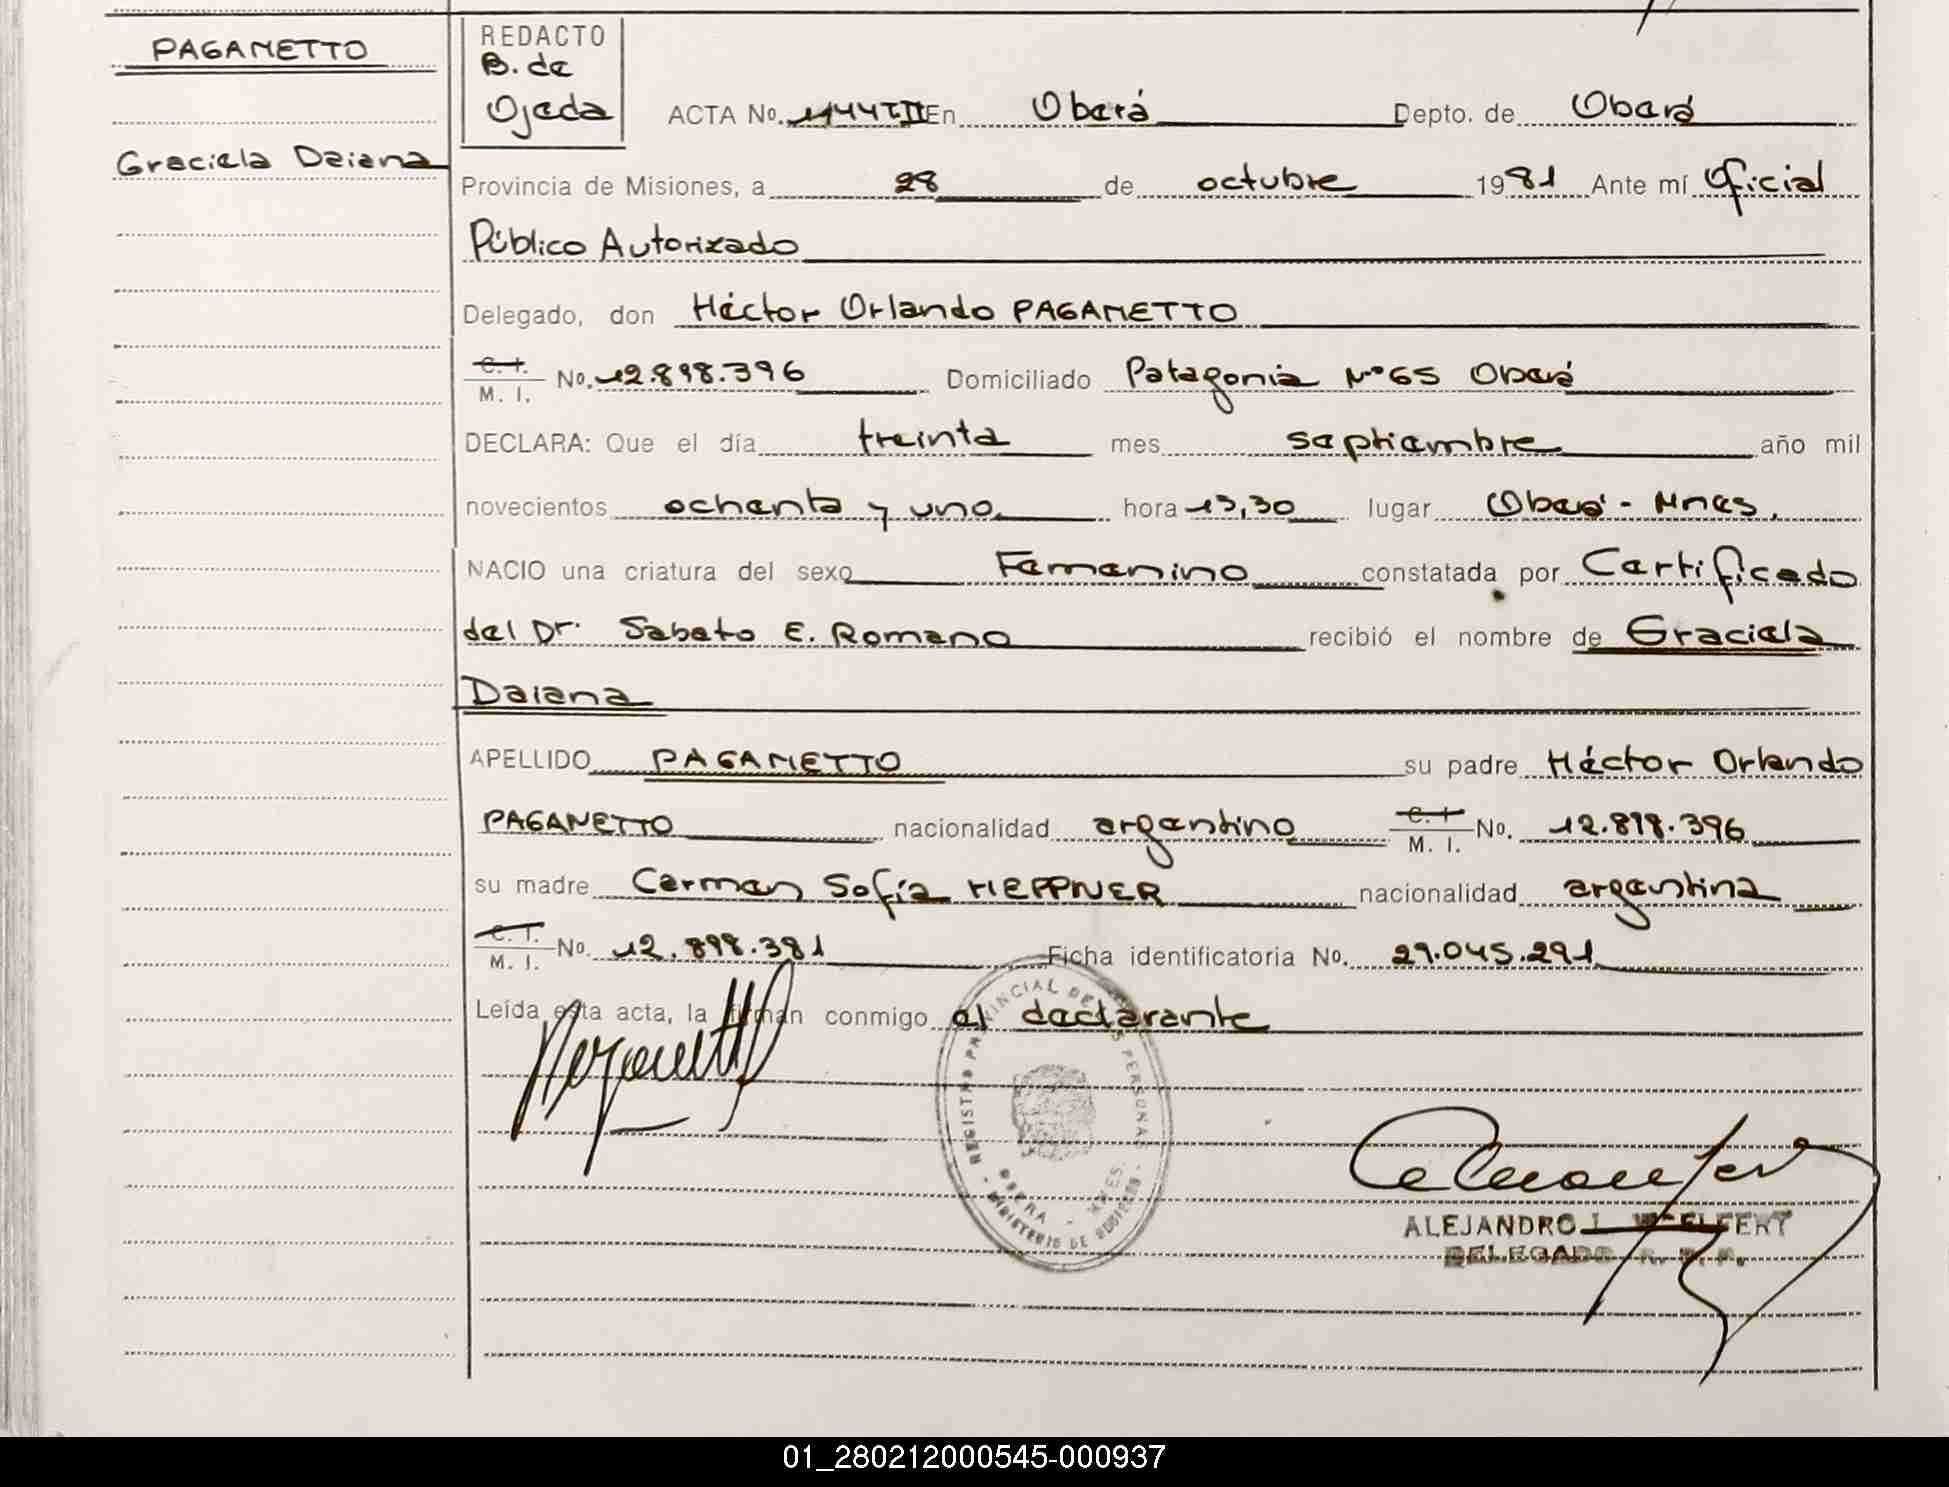 PAGANETTO
Graciela Daiana
REDACTO
B. de
Ojeda
ACTA No. 1144TII En Oberá Depto. de Oberá
Provincia de Misiones, a 28 de octubre 1981 Ante mí Oficial
Público Autorizado
Delegado, don Héctor Orlando PAGANETTO
C. I.
M. I. No. 12.898.396 Domiciliado Patagonia Nº 65 Oberá
DECLARA: Que el día treinta mes septiembre año mil
novecientos ochenta y uno hora 13,30 lugar Oberá - Mnes.
NACIO una criatura del sexo Femenino constatada por Certificado
del Dr. Sabato E. Romano recibió el nombre de Graciela
Daiana
APELLIDO PAGANETTO su padre Héctor Orlando
PAGANETTO nacionalidad argentino C. I.
M. I. No. 12.898.396
su madre Carmen Sofía HEPPNER nacionalidad argentina
C. I.
M. I. No. 12.898.381 Ficha identificatoria No. 29.045.291
Leída esta acta, la firman conmigo el declarante
REGISTRO PROVINCIAL DE LAS PERSONAS
OBERA - MNES.
- MINISTERIO DE GOBIERNO -
ALEJANDRO L. WELFERT
DELEGADO R. P. P.
01_280212000545-000937